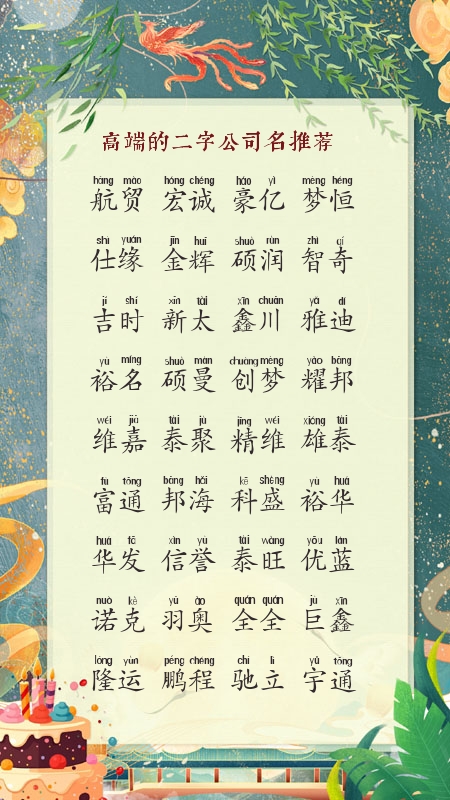 高端的二字公司名推荐
háng mào hóng chéng háo yì mèng héng
航贸 宏诚 豪亿 梦恒
shì yuán jīn huī shuò rùn zhì qí
仕缘 金辉 硕润 智奇
jí shí xīn tài xīn chuān yǎ dí
吉时 新太 鑫川 雅迪
yù míng shuò màn chuàng mèng yào bāng
裕名 硕曼 创梦 耀邦
wéi jiā tài jù jīng wéi xióng tài
维嘉 泰聚 精维 雄泰
fù tōng bāng hǎi kē shèng yù huá
富通 邦海 科盛 裕华
huá fā xìn yù tài wàng yōu lán
华发 信誉 泰旺 优蓝
nuò kè yǔ ào quán quán jù xīn
诺克 羽奥 全全 巨鑫
lóng yùn péng chéng chí lì yǔ tōng
隆运 鹏程 驰立 宇通